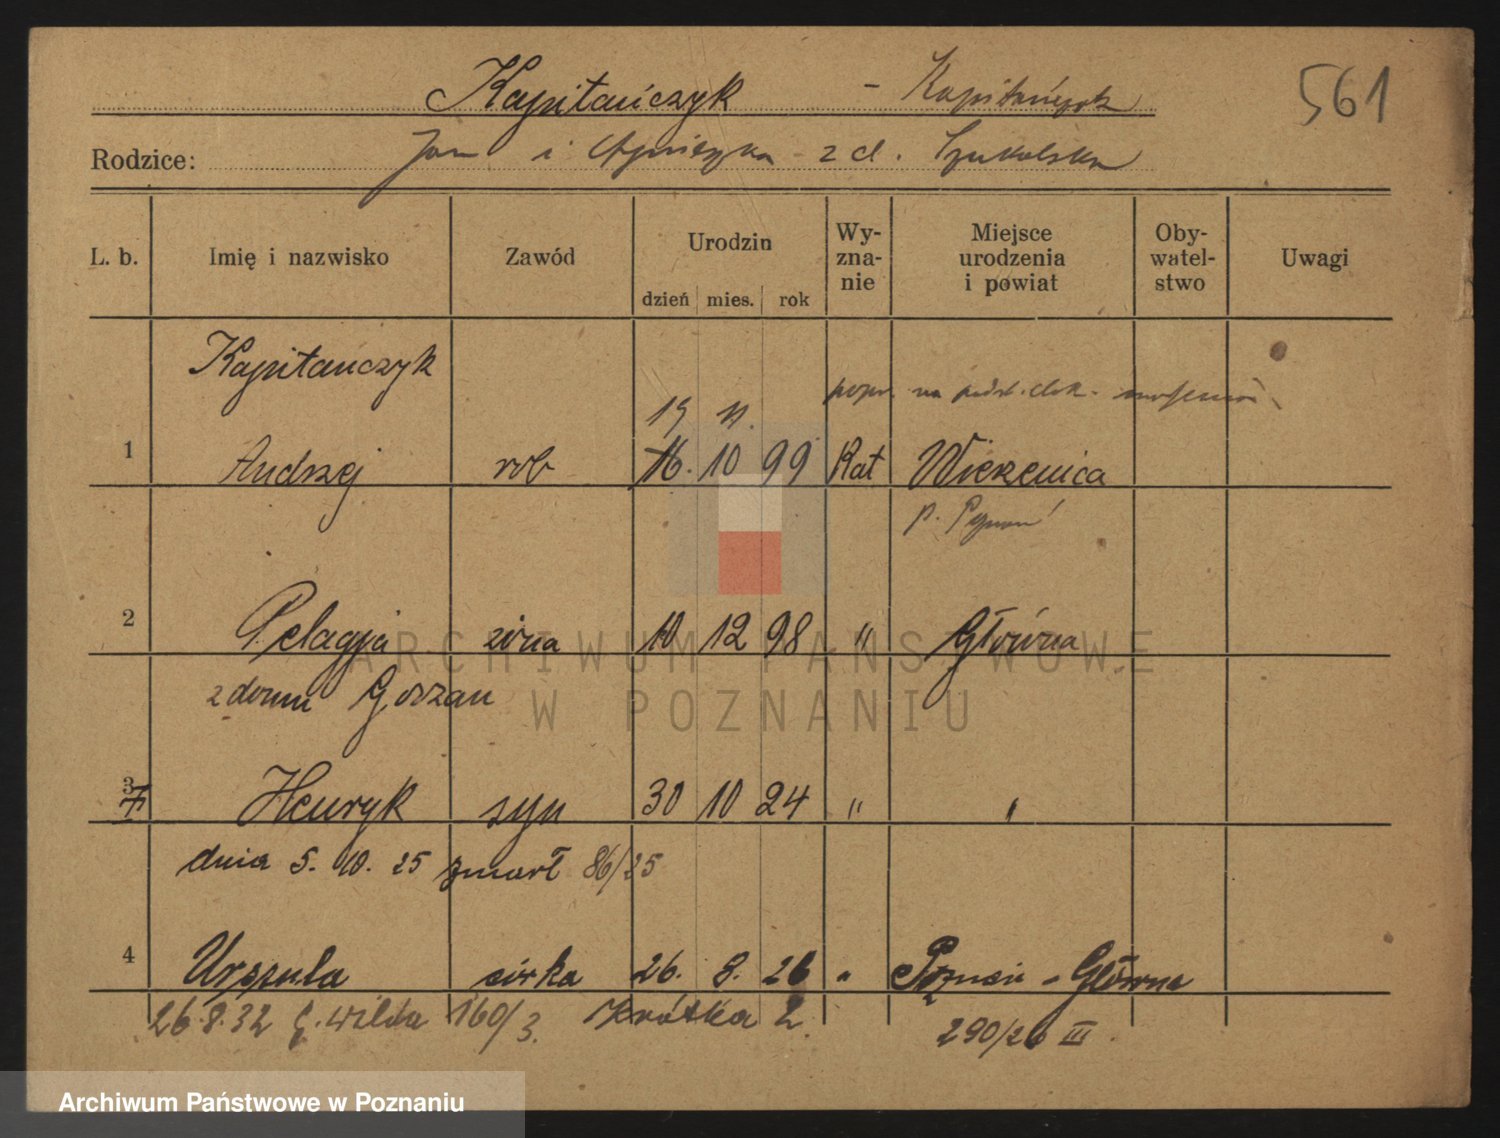 Kapitańczyk - Kapitańczyk 561
Rodzice: Jan i Agnieszka z d. Szukalska
L. b. Imię i nazwisko Zawód Urodzin dzień mies. rok Wy-zna-nie Miejsce urodzenia i powiat Oby-watel-stwo Uwagi
Kapitańczyk
19 11. popr. na podst. dok.
1 Andrzej rob 16. 10 99 Kat Wierzenica
p. Poznań
2 Pelagja żona 10 12 98 " Główna
z domu Goszan
3 Henryk syn 30 10 24 " "
dnia 5. 10. 25 zmarł 86/25
4 Urszula córka 26. 8. 26 " Poznań - Główna
26.8.32 G. Wilda 160/3. Krótka 2. 290/26 III.
ARCHIWUM PAŃSTWOWE
W POZNANIU
Archiwum Państwowe w Poznaniu